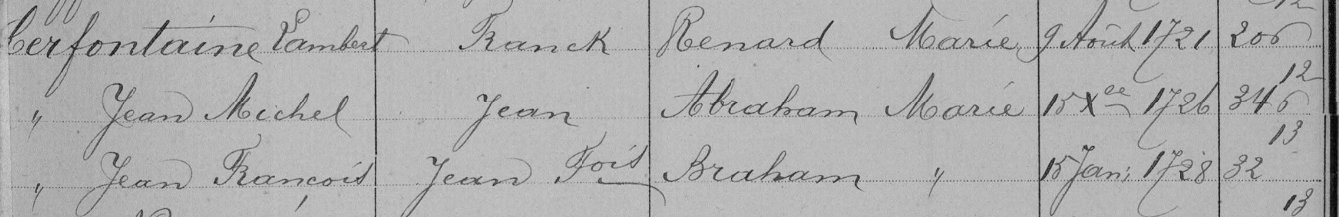 Cerfontaine Lambert Franck Renard Marie 9 Août 1721 206
12
" Jean Michel Jean Abraham Marie 15 Xbre 1726 346
13
" Jean François Jean Fois Braham " 15 Jan; 1728 32
13